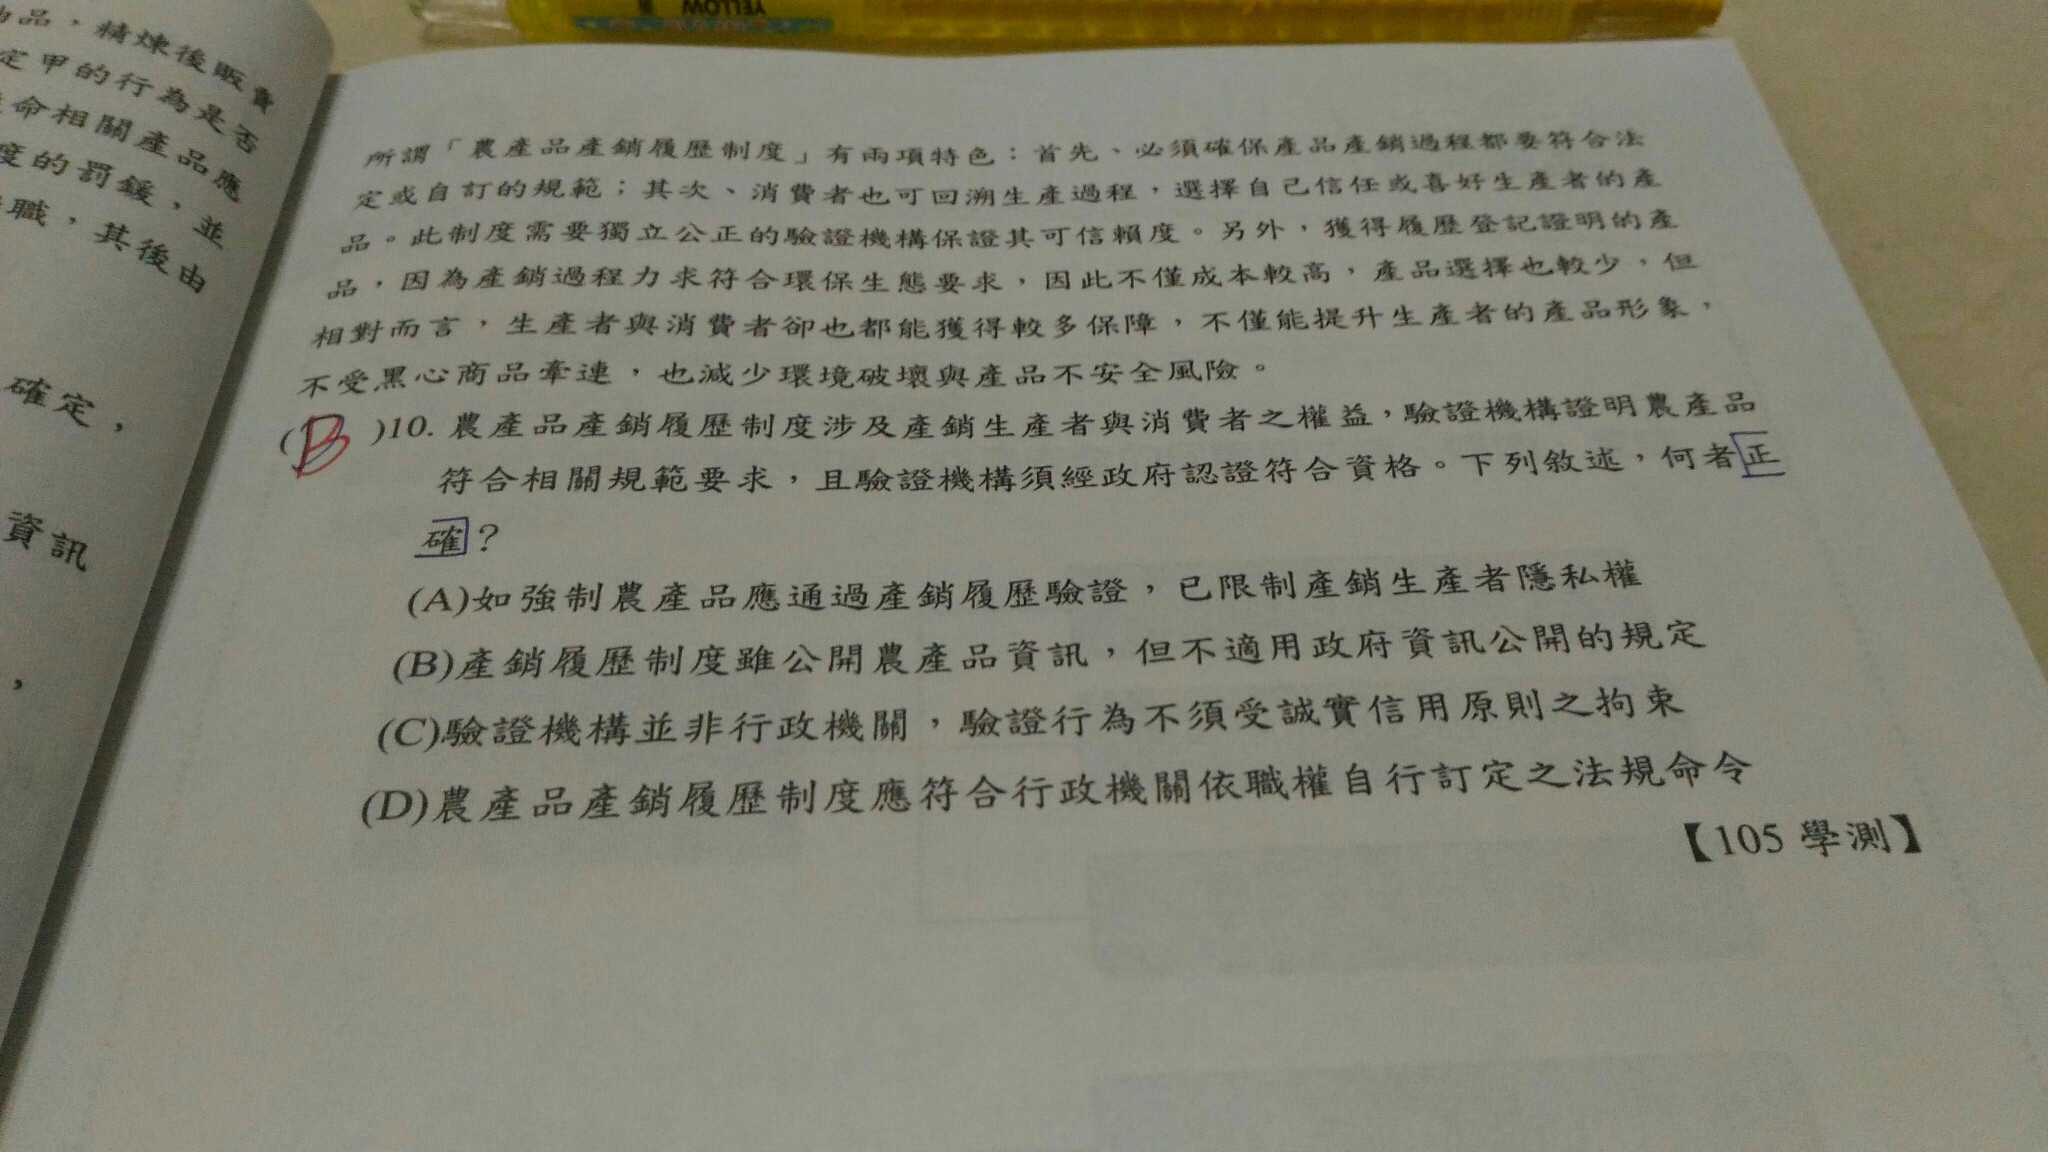 YELLOW
油品，精煉後販賣
定甲的行為是否
命相關產品應
度的罰鍰，並
職，其後由
確定，
資訊
，
所謂「農產品產銷履歷制度」有兩項特色：首先、必須確保產品產銷過程都要符合法
定或自訂的規範；其次、消費者也可回溯生產過程，選擇自己信任或喜好生產者的產
品。此制度需要獨立公正的驗證機構保證其可信賴度。另外，獲得履歷登記證明的產
品，因為產銷過程力求符合環保生態要求，因此不僅成本較高，產品選擇也較少，但
相對而言，生產者與消費者卻也都能獲得較多保障，不僅能提升生產者的產品形象，
不受黑心商品牽連，也減少環境破壞與產品不安全風險。
(B)10. 農產品產銷履歷制度涉及產銷生產者與消費者之權益，驗證機構證明農產品
符合相關規範要求，且驗證機構須經政府認證符合資格。下列敘述，何者正
確？
(A)如強制農產品應通過產銷履歷驗證，已限制產銷生產者隱私權
(B)產銷履歷制度雖公開農產品資訊，但不適用政府資訊公開的規定
(C)驗證機構並非行政機關，驗證行為不須受誠實信用原則之拘束
(D)農產品產銷履歷制度應符合行政機關依職權自行訂定之法規命令
【105 學測】